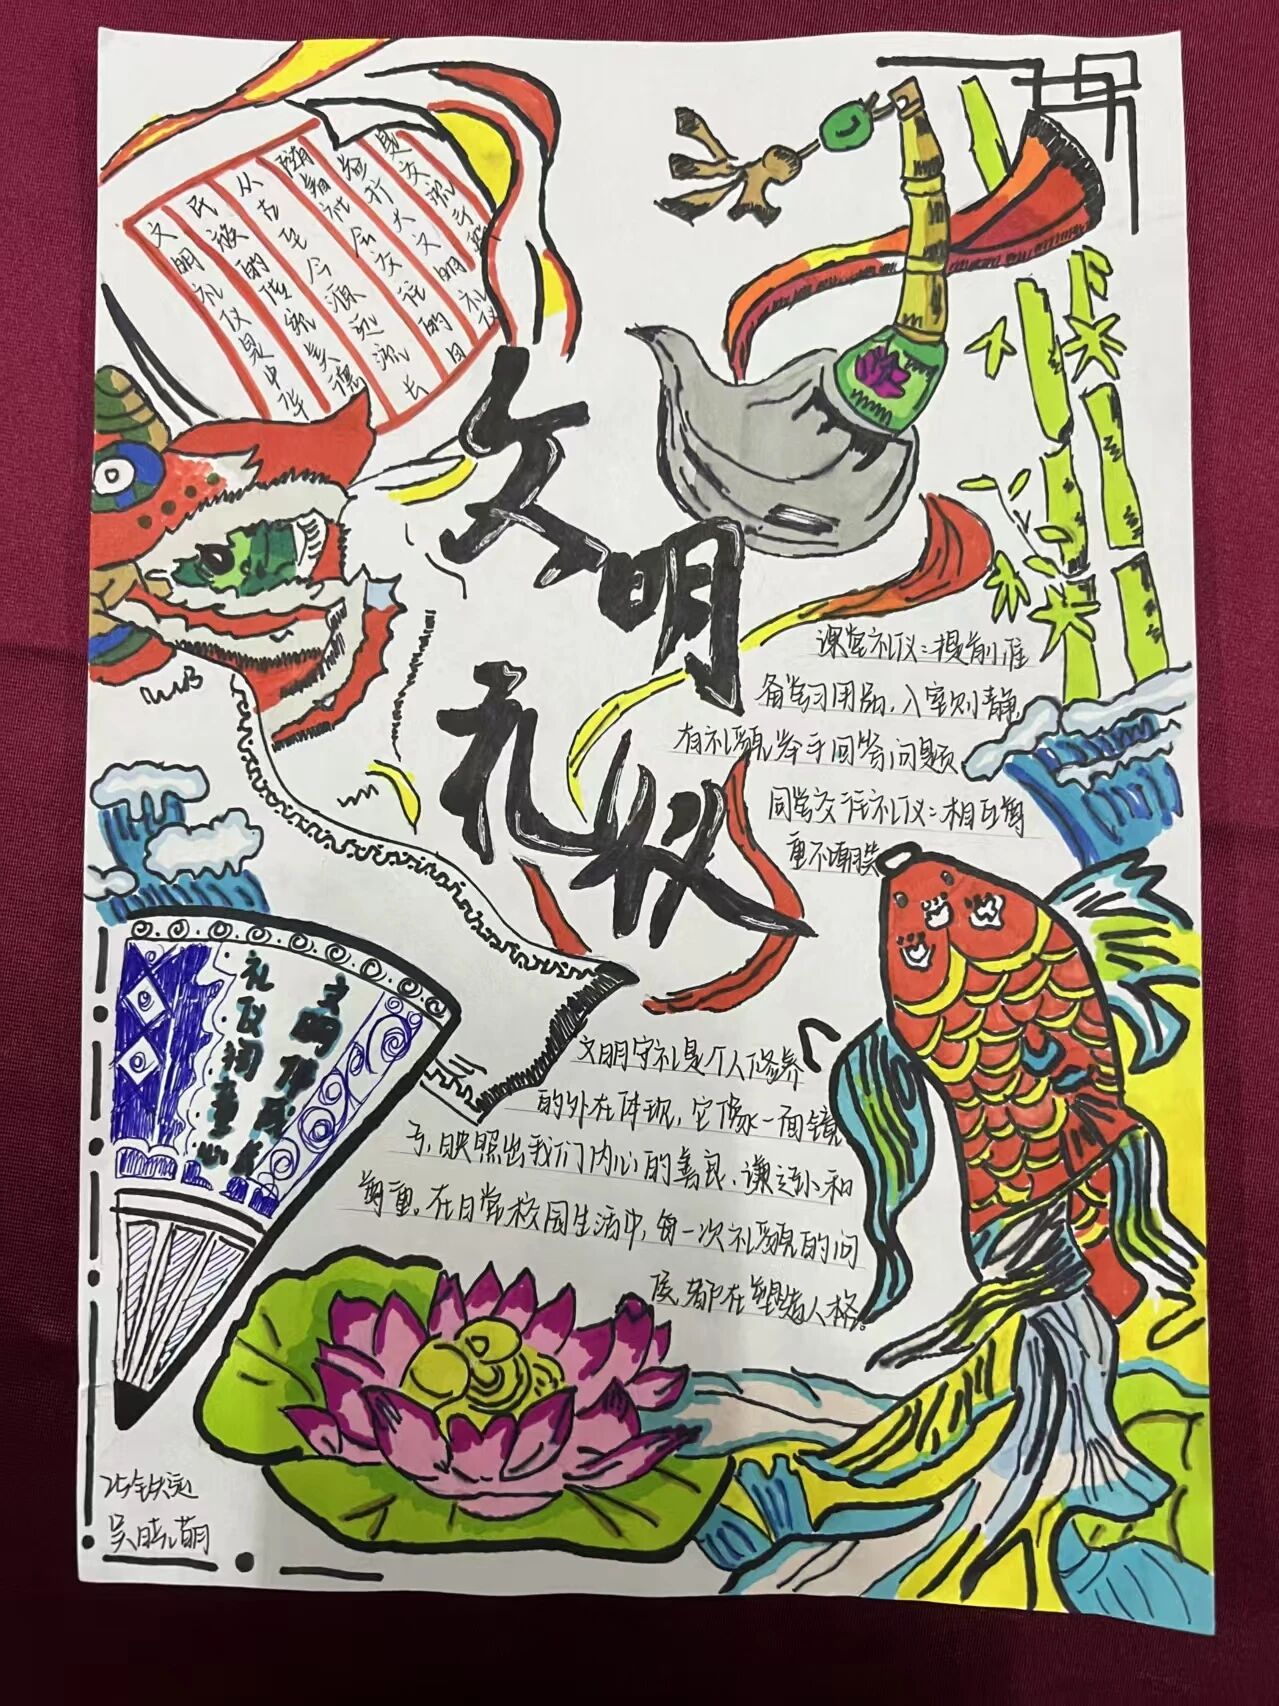 文明礼仪是中华
民族的传统美德
从古至今源远流长
随着社会交往的日
益
文明
礼仪
课堂礼仪：提前准
备学习用品，入室则静，
有礼貌举手回答问题
同学交往礼仪：相互尊
重不嘲笑
文明守礼是个人修养
的外在体现，它像一面镜
子，映照出我们内心的善良、谦逊和
尊重。在日常校园生活中，每一次礼貌的问
候，都在塑造人格。
礼仪润童心
吴晓萌